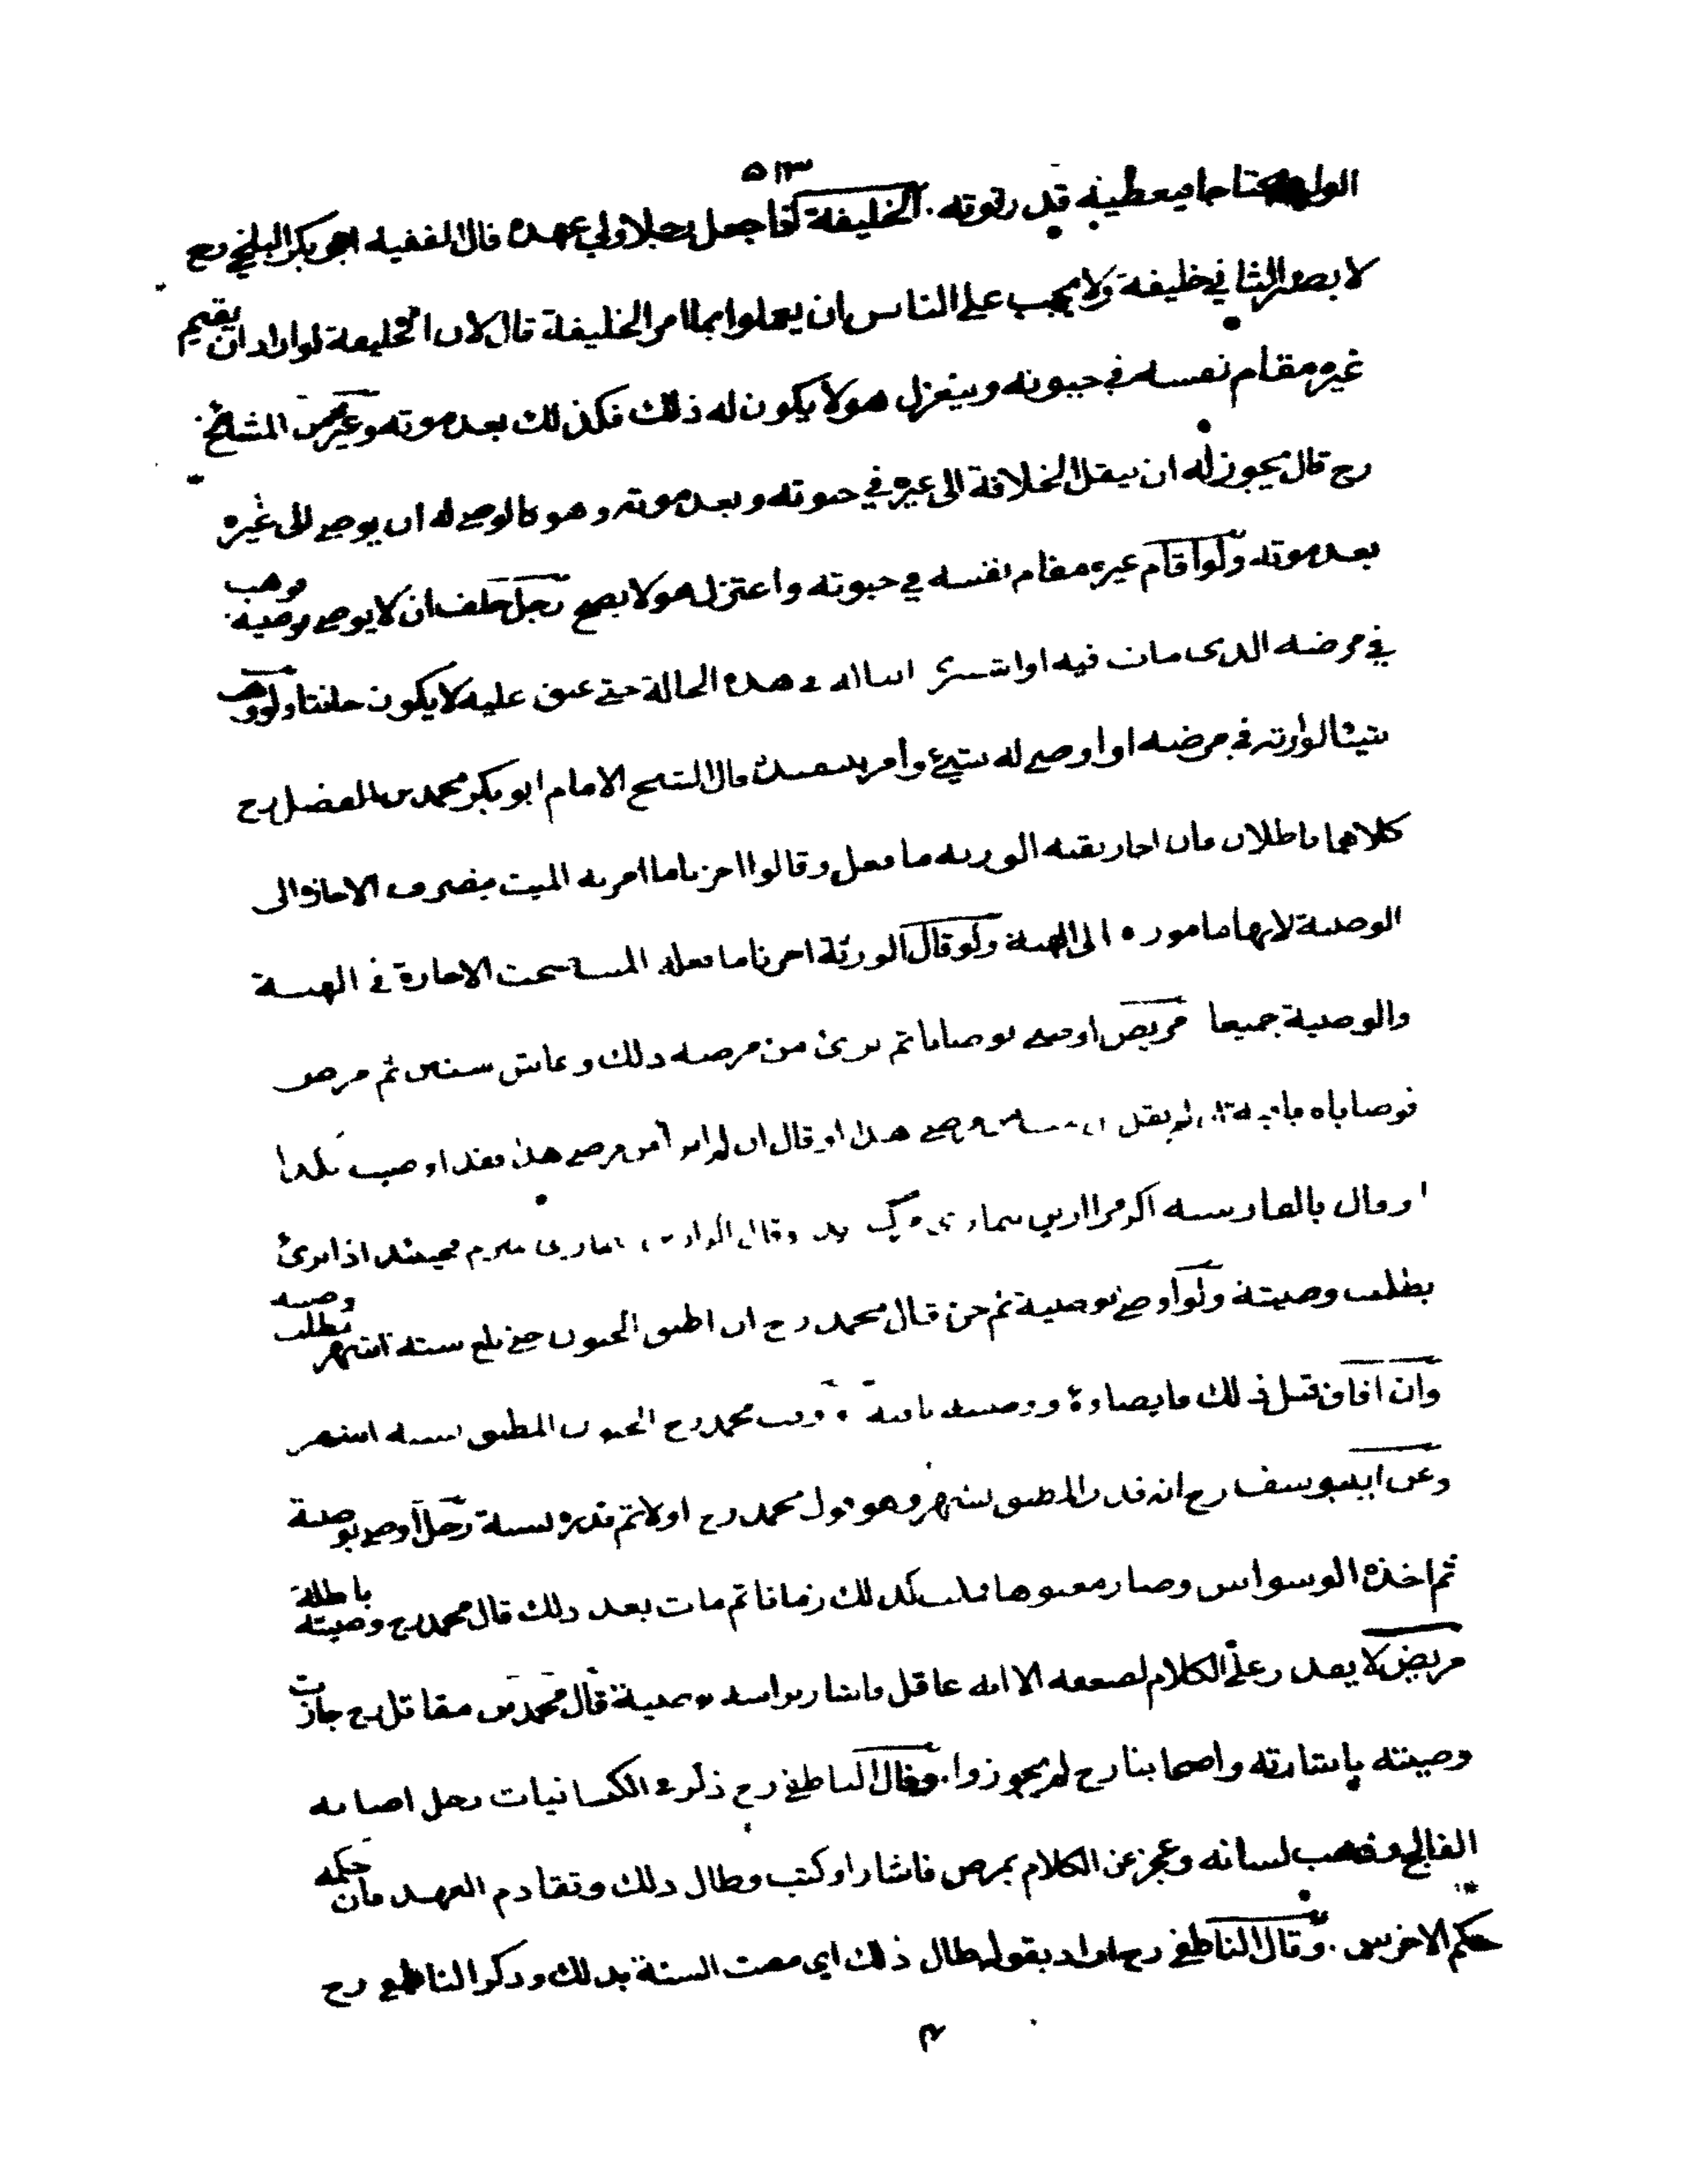 ٥١٣
الولد محتاجا فيعطيه قدر قوته . الخليفة اذا جعل رجلا ولي عهده قال الفقيه ابو بكر البلخي رح
لا يصير الثاني خليفة ولا يجب على الناس ان يعملوا بما امر الخليفة قال لان الخليفة لو اراد ان يقيم
غيره مقام نفسه في حيوته وينعزل هو لا يكون له ذلك فكذلك بعد موته وعن غيره من المشائخ
رح قال يجوز له ان ينقل الخلافة الى غيره في حيوته وبعد موته وهو كالوصي له ان يوصي الى غيره
بعد موته ولو اقام غيره مقام نفسه في حيوته واعتزل هو لا يصح رجل حلف ان لا يوصي بوصية فوهب
في مرضه الذي مات فيه او اشترى اباه في هذه الحالة حتى عتق عليه لا يكون حانثا ولو وهب
شيئا لوارثه في مرضه او اوصى له بشيء وامر بتنفيذه قال الشيخ الامام ابو بكر محمد بن الفضل رح
كلاهما باطلان فان اجاز بقية الورثة ما فعل وقالوا اجزنا ما امر به الميت ينصرف الاجازة الى
الوصية لانها مامورة الى الهبة ولو قال الورثة اجزنا ما فعله الميت صحت الاجازة في الهبة
والوصية جميعا مريض اوصى بوصايا ثم برئ من مرضه ذلك وعاش سنين ثم مرض
فوصاياه باقية ان لم يقل ان مت من مرضي هذا او قال ان لم ابرأ من مرضي هذا فقد اوصيت بكذا
او قال بالفارسية اكر مرا ازين بيماري مرك وقال اكر ازين بيماري بميرم فحينئذ اذا برئ
بطلت وصيته ولو اوصى بوصية ثم جن قال محمد رح ان اطبق الجنون حتى بلغ ستة اشهر بطلت وصيته
وان افاق قبل ذلك فايصاؤه ووصيته باقية وقت محمد رح الجنون المطبق بستة اشهر
وعن ابي يوسف رح انه قدر المطبق بشهر وهو قول محمد رح اولا ثم قدره بسنة رجل اوصى بوصية
ثم اخذه الوسواس وصار معتوها فمكث كذلك زمانا ثم مات بعد ذلك قال محمد رح وصيته باطلة
مريض لا يقدر على الكلام لضعفه الا انه عاقل فاشار براسه بوصية قال محمد بن مقاتل رح جازت
وصيته باشارته واصحابنا رح لم يجوزوا . وقال الناطفي رح ذكر في الكيسانيات رجل اصابه
الفالج فذهب لسانه وعجز عن الكلام بمرض فاشار او كتب وطال ذلك وتقادم العهد فان حكمه
حكم الاخرس . وقال الناطفي رح اراد بقوله طال ذلك اي مضت السنة بذلك وذكر الناطفي رح